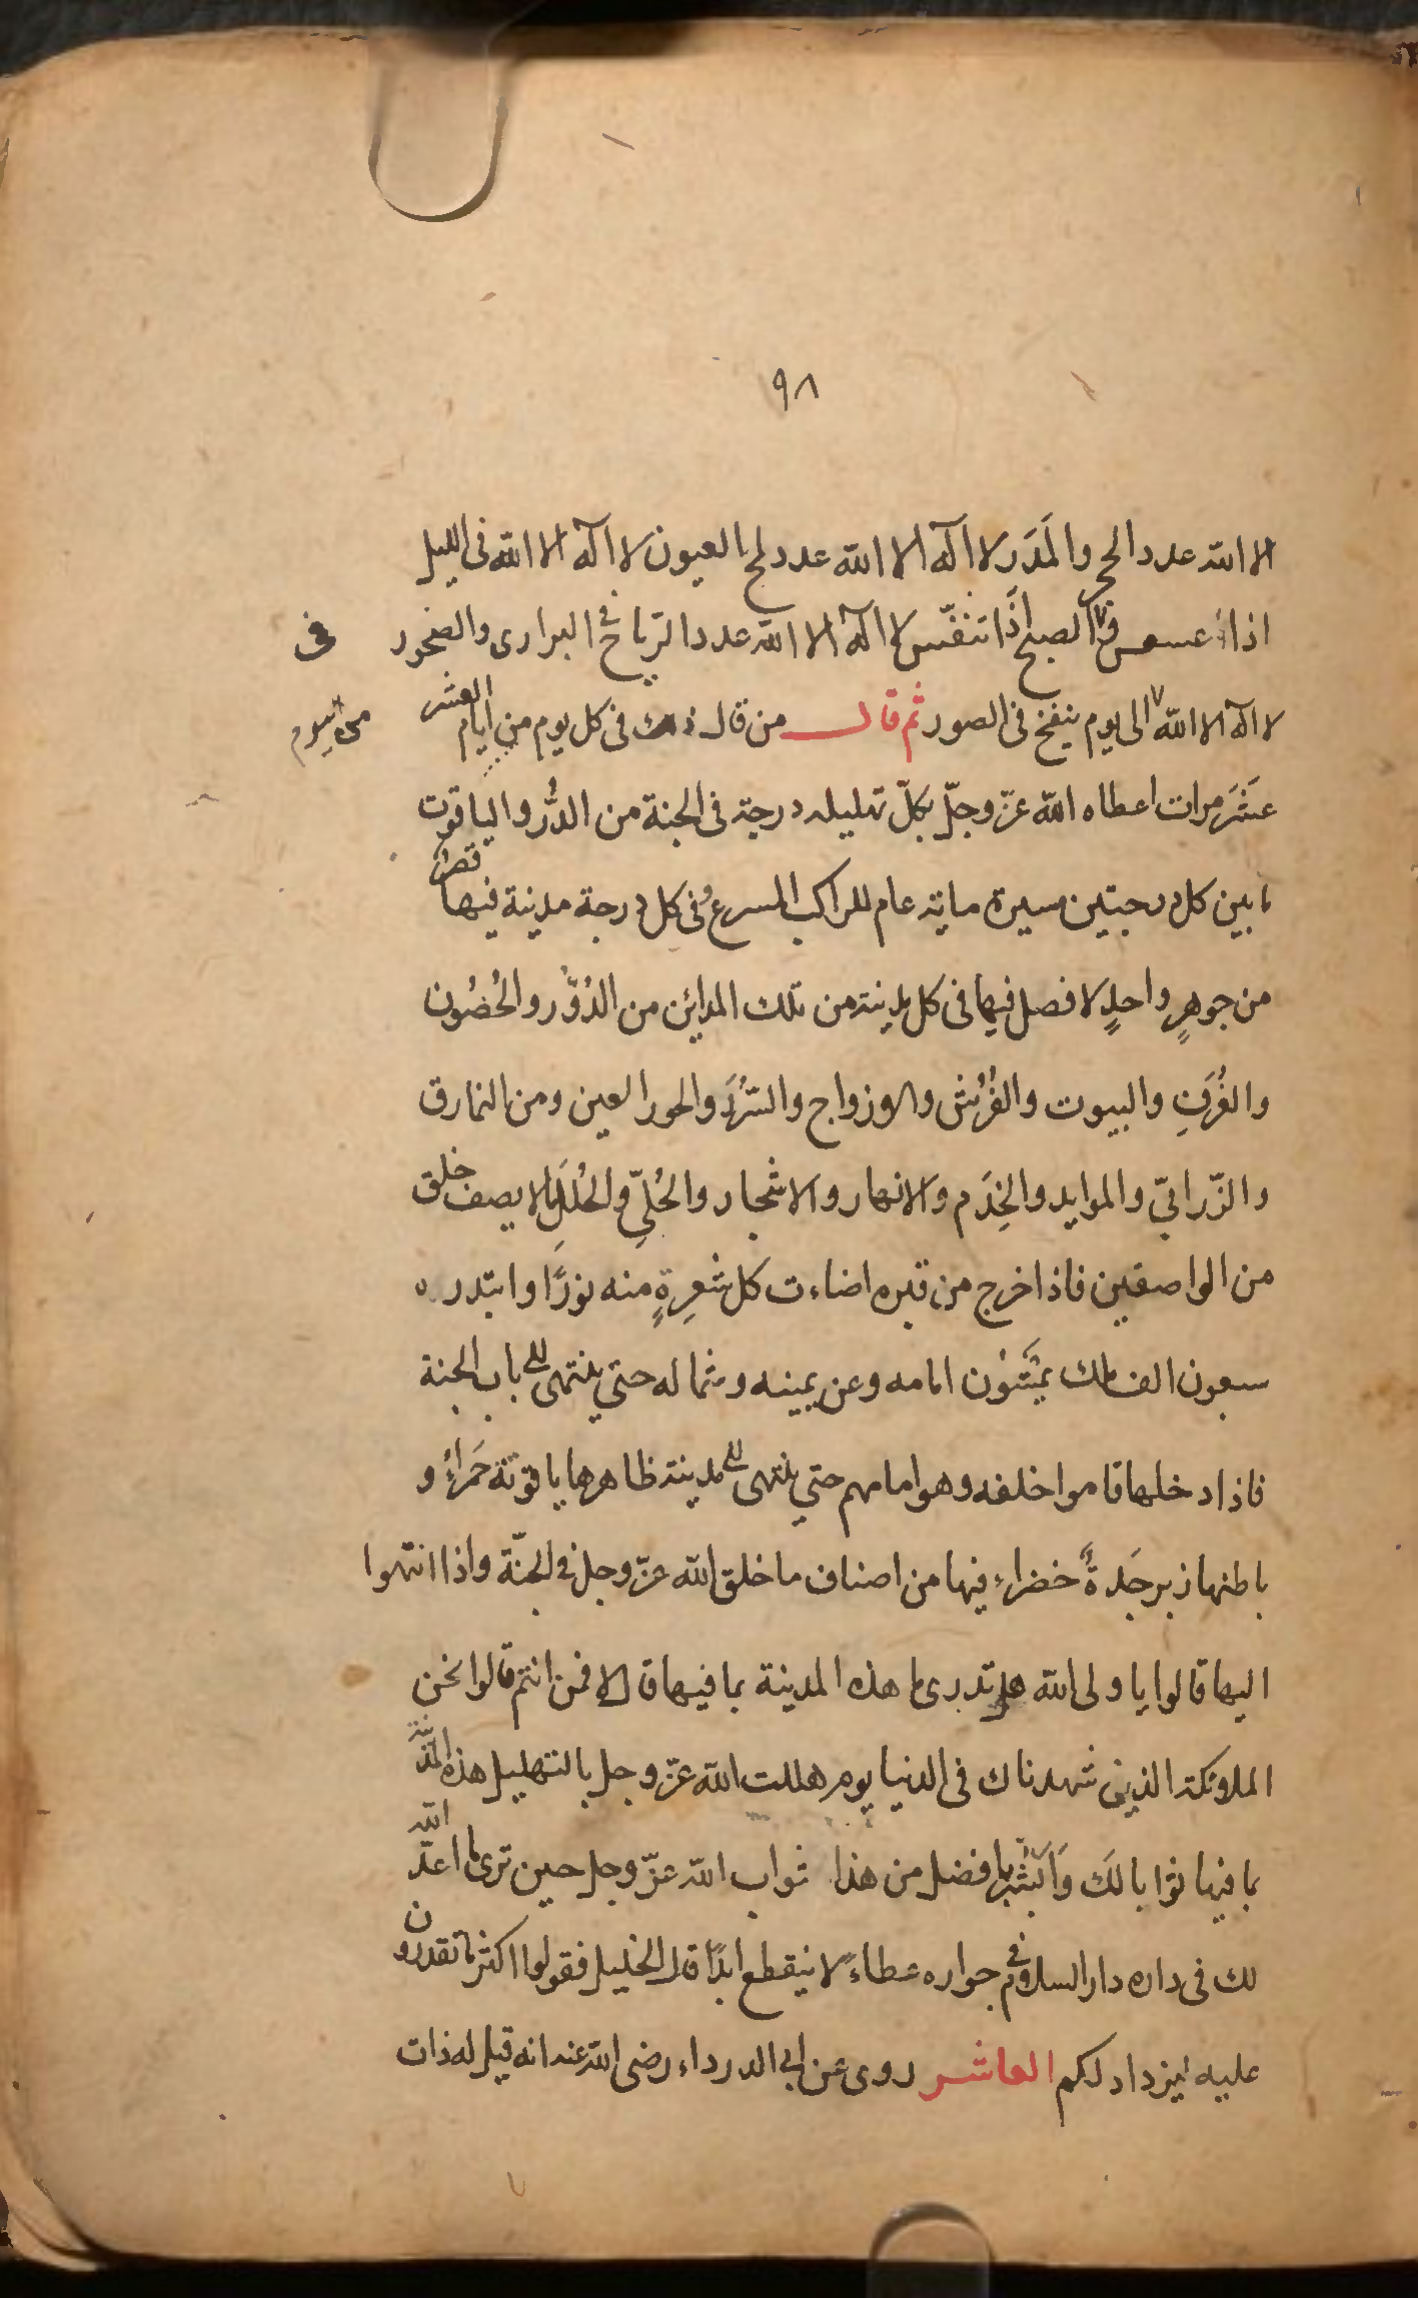 ٩٨
الا الله عدد الحجر والمَدَر لا اله الا الله عدد لمح العيون لا اله الا الله فى الليل
اذا عسعس وفى الصبح اذَا تنفّس لا اله الا الله عدد الرّياح فى البرارى والصخور
فى
لا اله الا الله الى يوم ينفخ فى الصور ثم قال من قال ذلك فى كل يوم من ايام العشر
من اليوم
عَشْرَ مرات اعطاه الله عزّ وجلّ بكلّ تهليله درجة فى الجنة من الدُّر والياقوت
ما بين كل درجتين مسيرة ماية عام للراكب المسرع وفى كل درجة مدينة فيها قصر
من جوهرٍ واحدٍ لا فصل فيها فى كل مدينة من تلك المدائن من الدُوَّر والحُصُون
والغُرَفِ والبيوت والفُرُش والازواج والسُّرُرَ والحور العين ومن النمارق
والزّرابيّ والموايد والخِدَم والانهار والاشجار والحُلِيّ والحُلَلِ ما لا يصف خلق
من الواصفين فاذا خرج من قبره اضاءت كل شعرةٍ منه نورًا وابتدره
سبعون الف ملك يَمشُون امامه وعن يمينه وشماله حتي ينتهى الى باب الجنة
فاذا دخلها قاموا خلفه وهو امامهم حتي ينتهى الى مدينة ظاهرها ياقوتة حَمراءُ و
باطنها زبرجَدةٌ خضراء فيها من اصناف ما خلق الله عزّ وجل فى الجنّة واذا انتهوا
اليها قالوا يا ولى الله هل تدرى ما هذه المدينة بما فيها قال لا فمن انتم قالوا نحن
الملائكة الذين شهدناك فى الدنيا يوم هللت الله عزّ وجل بالتهليل هذه المدينة
بما فيها ثوابا لكَ وَاَبشِر بافضل من هذا ثواب الله عزّ وجل حين ترى ما اعدّ الله
لك فى داره دار السلام وفى جواره عطاءً لا ينقطع ابدًا قال الخليل فقولوا اكثر ما تقدرون
عليه ليزداد لكم العاشر روى عن ابى الدرداء رضى الله عنه انه قيل له ذات